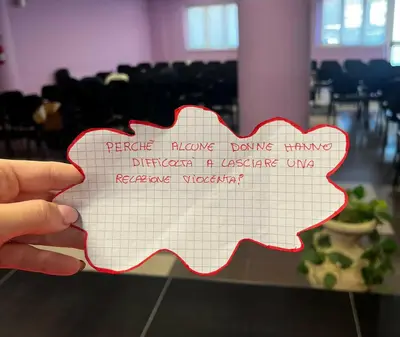 PERCHÉ ALCUNE DONNE HANNO
DIFFICOLTÀ A LASCIARE UNA
RELAZIONE VIOLENTA?